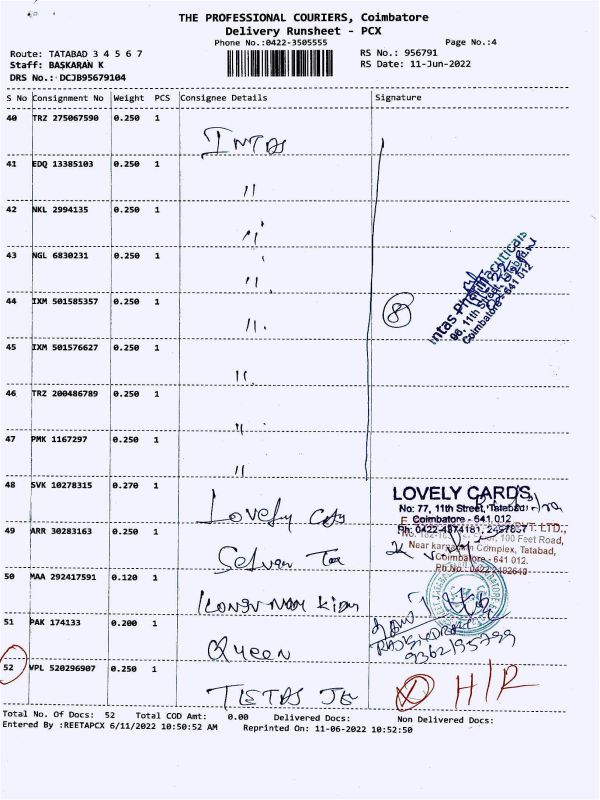 THE PROFESSIONAL COURIERS, Coimbatore
Delivery Runsheet - PCX
Phone No.:0422-3505555 Page No.:4
Route: TATABAD 3 4 5 6 7 RS No.: 956791
Staff: BASKARAN K RS Date: 11-Jun-2022
DRS No.: DCJB95679104
S No Consignment No Weight PCS Consignee Details Signature
40 TRZ 275067590 0.250 1
INTAS
41 EDQ 13385103 0.250 1
"
42 NKL 2994135 0.250 1
"
43 NGL 6830231 0.250 1
"
44 IXM 501585357 0.250 1
"
8
Intas Pharmaceuticals
96, 11th Street, Tatabad
Coimbatore - 641 012
45 IXM 501576627 0.250 1
"
46 TRZ 200486789 0.250 1
"
47 PMK 1167297 0.250 1
"
48 SVK 10278315 0.270 1
Lovely
LOVELY CARDS,
No: 77, 11th Street, Tatabad,
Coimbatore - 641 012
Ph: 0422-4374181,
49 ARR 30283163 0.250 1
Selvan
PVT. LTD.,
100 Feet Road,
Near Complex, Tatabad,
Coimbatore - 641 012.
Ph.No.
50 MAA 292417591 0.120 1
51 PAK 174133 0.200 1
Queen
52 VPL 520296907 0.250 1
H/R
Total No. Of Docs: 52 Total COD Amt: 0.00 Delivered Docs: Non Delivered Docs:
Entered By :REETAPCX 6/11/2022 10:50:52 AM Reprinted On: 11-06-2022 10:52:50